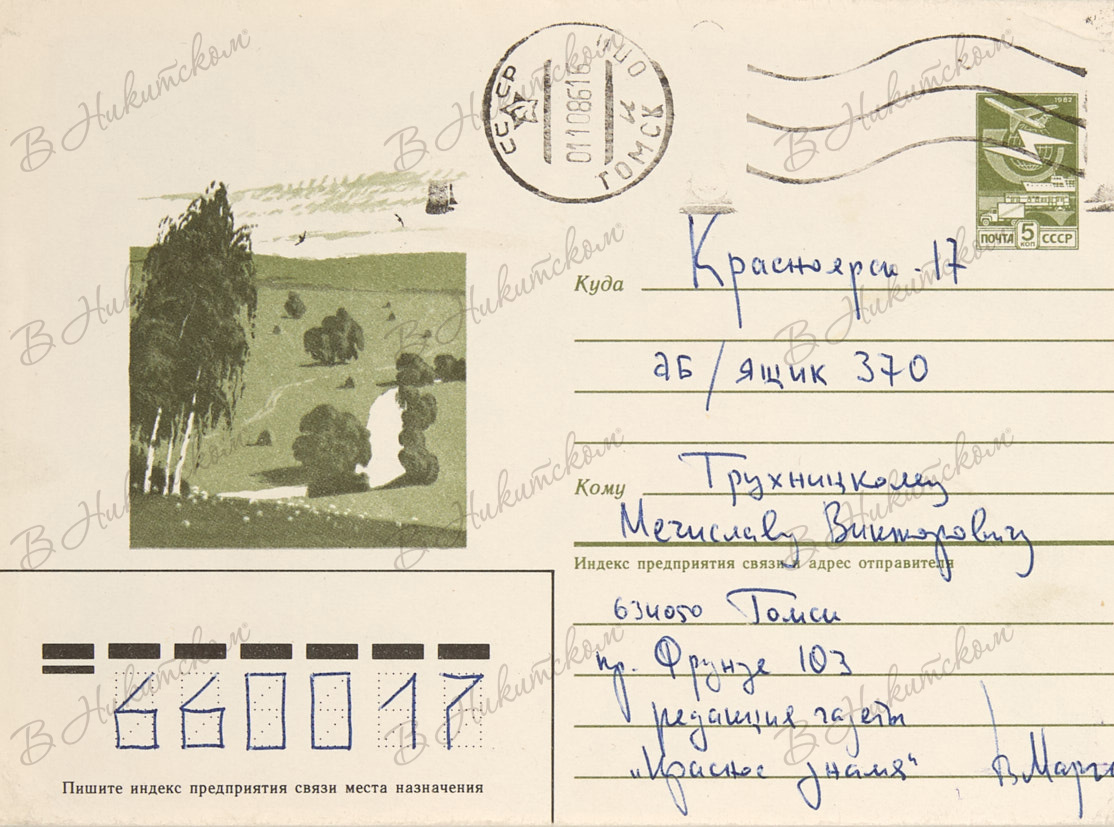 СССР
01108616
ТОМСК
1982
ПОЧТА 5 КОП СССР
Куда Красноярск-17
аб/ящик 370
Кому Трухницкому
Мечиславу Викторовичу
Индекс предприятия связи и адрес отправителя
634050 Томск
пр. Фрунзе 103
редакция газеты
„Красное знамя"
660017
Пишите индекс предприятия связи места назначения
В Никитском